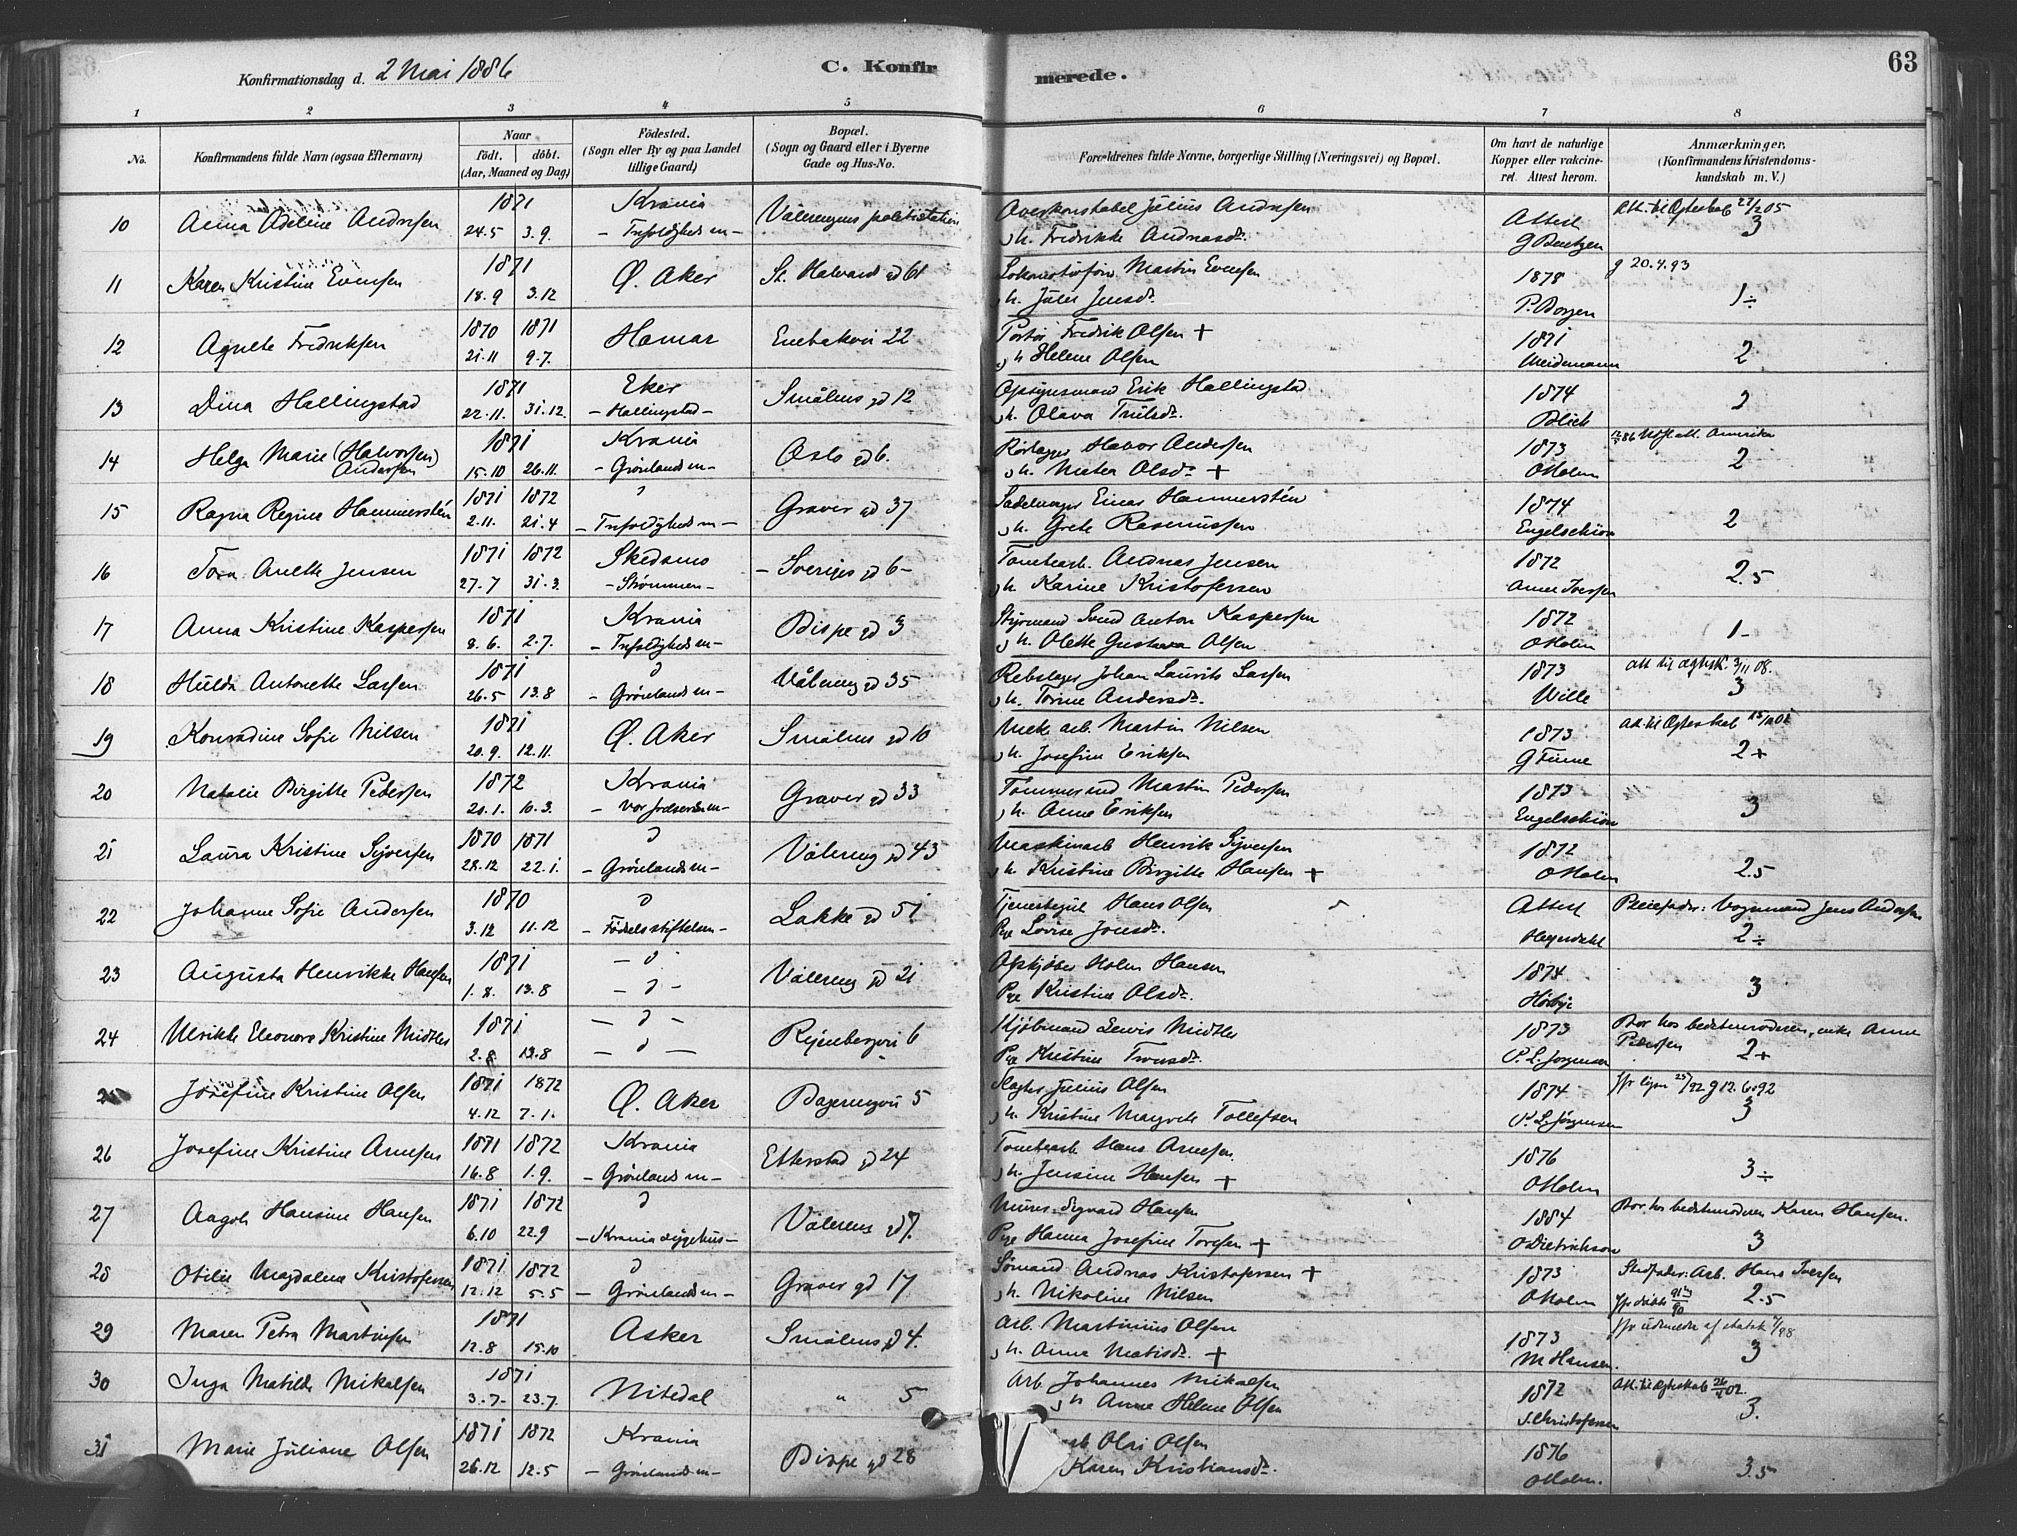 63
Konfirmationsdag d. 2 Mai 1886
C. Konfirmerede.
1 2 3 4 5 6 7 8
No.
Konfirmandens fulde Navn (ogsaa Efternavn)
Naar
födt. döbt.
(Aar, Maaned og Dag)
Födested.
(Sogn eller By og paa Landet
tillige Gaard)
Bopæl.
(Sogn og Gaard eller i Byerne
Gade og Hus-No.
Forældrenes fulde Navne, borgerlige Stilling (Næringsvei) og Bopæl.
Om havt de naturlige
Kopper eller vakcine-
ret. Attest herom.
Anmærkninger,
(Konfirmandens Kristendoms-
kundskab m. V.)
10 Anna Adeline Andresen 1871 24.5 3.9. Krania - Trefoldigheds m - Vålerengens politistation Overkonstabel Julius Andresen Attest Att. til Ægteskab 27/2 05
h. Fredrikke Andreasd. G Bentzen 3
11 Karen Kristine Evensen 1871 18.9 3.12 Ø. Aker St. Halvards gd 61 Lokomotivförer Martin Evensen 1878 g 20.4.93
h. Julie Jensd. P. Borgen 1÷
12 Agnethe Fredriksen 1870 1871 21.11 9.7. Hamar Enebakvei 22 Portör Fredrik Olsen + 1871
h Helene Olsen Meidemann 2
13 Dina Hallingstad 1871 22.11. 31.12. Eker - Hallingstad - Smålens gd 12 Opsynsmand Erik Hallingstad 1874
h. Olava Trulsd. 2
14 Helga Marie (Halvorsen) Andersen 1871 15.10 26.11. Krania - Grønlands m - Oslo gd 6. Rörlægger Halvor Andersen 1873 Amerika
h. Mathea Olsd. + O Holm 2
15 Ragna Regine Hammerstén 1871 1872 2.11. 21.4 - Trefoldigheds m - Graver gd 37 Sadelmager Einar Hammerstén 1874
h. Grete Rasmussen Engelschiøn 2
16 Tora Anette Jensen 1871 1872 27.7 31.3. Skedsmo - Strømmen - - Sveriges gd 6 - Tomtearb. Andreas Jensen 1872
h. Karine Kristofersen Anne Iversen 2.5
17 Anna Kristine Kaspersen 1871 8.6. 2.7. Krania - Trefoldigheds m - Bispe gd 3 Styrmand Svend Anton Kaspersen 1872
h. Olette Gustava Olsen O Holm 1-
18 Hulda Antonette Larsen 1871 26.5 13.8 - Grønlands m - Vålereng gd 35 Rebslager Johan Laurits Larsen 1873 att til ægtesk. 3/11 08.
h. Torine Andersd. Wille 3
19 Konradine Sofie Nilsen 1871 20.9. 12.11. Ø. Aker Smålens gd 10 Mek. arb. Martin Nilsen 1873 Att. til Ægteskab
h. Josefine Eriksen G Finne 2+
20 Natalie Birgitte Pedersen 1872 20.1. 10.3. Krania - Vor frelsers m - Graver gd 33 Tömmermd Martin Pedersen 1873
h. Anne Eriksen Engelschiøn 3
21 Laura Kristine Syversen 1870 1871 28.12 22.1. - Grønlands m - Vålereng gd 43 Maskinarb Henrik Syversen 1872
h Kristine Birgitte Hansen + O Holm 2.5
22 Johanne Sofie Andersen 1870 3.12 11.12 - Födselsstiftelsen - Lakke gd 51 Hans Olsen Attest Pleiefader: Vognmand Jens Andersen
Pge Lovise Jonsd. Heyerdahl 2÷
23 Augusta Henrikke Hansen 1871 1.8. 13.8 Vålereng gd 21 Opkjøber Holm Hansen 1874
Pge Kristine Olsd. Hörbye 3
24 Ulrikke Eleonore Kristine Midtles 1871 2.8. 13.8 Ryenbergvei 6 Kjöbmand Lewis Midtles 1873 Bor hos bedstemoderen, enke Anne
Pge Kristine Tronsd. P. L. Jorgensen Pedersen 2+
Josefine Kristine Olsen 1871 1872 4.12 7.1. Ø. Aker 5 Slagter Julius Olsen 1874 12.6.92
h. Kristine Margrete Tollefsen P. L. Jörgensen 3
26 Josefine Kristine Arnesen 1871 1872 16.8 1.9. Krania - Grønlands m - Etterstad gd 24 Tomtearb Hans Arnesen 1876
h. Jensine Hansen + O Holm 3÷
27 Aagot Hansine Hansen 1871 1872 6.10 22.9 - Krania sygehus - Våleren gd 7. Murer Sigvard Hansen 1884 Bor hos bedstemoderen Karen Hansen.
Pge Hanna Josefine Toresen + O Dietrichson 3
28 Otilie Magdalene Kristofersen 1871 1872 12.12 5.5 - Grønlands m - Graver gd 17 Sömand Andreas Kristofersen + 1873 Stedfader: Arb. Hans Iversen
h. Nikoline Nilsen O Holm 2.5
29 Maren Petra Martinsen 1871 12.8 15.10 Asker Smålens gd 4. Arb. Martinius Olsen 1873
h. Anne Matisd. + M Hansen. 3
30 Inga Matilde Mikalsen 1871 3.7. 23.7. Nitedal " 5 Arb. Johannes Mikalsen 1872 Att. til Ægteskab 02.
h Anne Helene Olsen S. Christofersen 3.
31 Marie Juliane Olsen 1871 1872 26.12 12.5 Krania - Grønlands m - Bispe gd 28 Olsen 1876
Karen Kristiansd. O Holm. 3.5